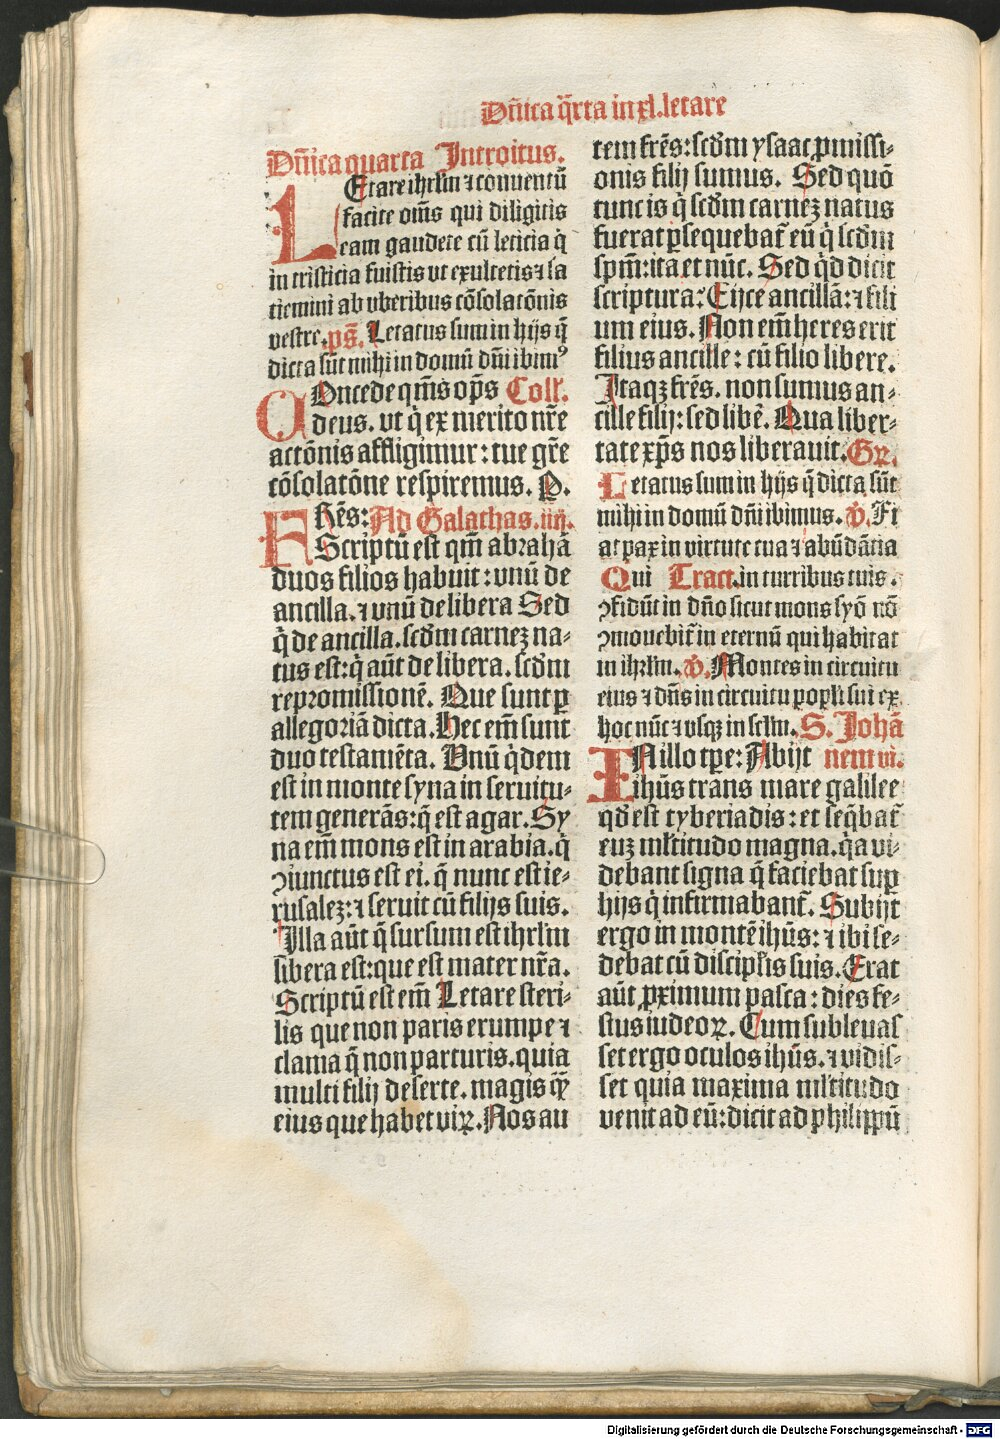 Dñica q̃rta in xl. letare
Dñica quarta Introitus.
LEtare ihrlm ⁊ conuentũ
facite oms̃ qui diligitis
eam gaudete cũ leticia q̇
in tristicia fuistis vt exultetis ⁊ sa
tiemini ab vberibus cõsolatõnis
vestre. ps̃. Letatus sum in hijs q̃
dicta sũt mihi in domũ dñi ibimꝰ
COncede qm̃s op̃s Coll'.
deus. vt q̇ ex merito nr̃e
actõnis affligimur: tue gr̃e
cõsolatõne respiremus. P.
FRẽs: Ad Galathas. iiij.
Scriptũ est qm̃ abrahã
duos filios habuit: vnũ de
ancilla. ⁊ vnũ de libera Sed
q̇ de ancilla. scd̃m carnez na⸗
tus est: q̇ aũt de libera. scd̃m
repromissionẽ. Que sunt ꝑ
allegoriã dicta. Hec em̃ sunt
duo testamẽta. Vnũ q̇dem
est in monte syna in seruitu⸗
tem generãs: q̃ est agar. Sy
na em̃ mons est in arabia. q̇
ꝯiunctus est ei. q̃ nunc est ie⸗
rusalez: ⁊ seruit cũ filijs suis.
Illa aũt q̃ sursum est ihrlm
libera est: que est mater nr̃a.
Scriptũ est em̃ Letare steri⸗
lis que non paris erumpe ⁊
clama q̃ non parturis. quia
multi filij deserte. magis qƺ̃
eius que habet viꝝ. Nos au
tem frẽs: scd̃m ysaac ꝓmissi⸗
onis filij sumus. Sed quõ
tunc is q̇ scd̃m carnez natus
fuerat ꝑsequebat̃ eũ q̇ scd̃m
spm̃: ita et nũc. Sed qd̃ dicit
scriptura? Eijce ancillã: ⁊ fili
um eius. Non em̃ heres erit
filius ancille: cũ filio libere.
Itaqꝫ frẽs. non sumus an⸗
cille filij: sed libẽ. Qua liber⸗
tate xp̃s nos liberauit. Gꝝ.
Letatus sum in hijs q̃ dicta sũt
mihi in domũ dñi ibimus. v̇. Fi
at pax in virtute tua ⁊ abũdãtia
Qui Tract. in turribus tuis.
ꝯfidũt in dño sicut mons syõ nõ
ꝯmouebit̃ in eternũ qui habitat
in ihrlm. v̇. Montes in circuitu
eius ⁊ dñs in circuitu popl'i sui ex
hoc nũc ⁊ vsqꝫ in sclm. S. Johã
IN illo tꝑe: Abijt nem vi.
ihũs trans mare galilee
qd̃ est tyberiadis: et seq̃bat̃
euz ml'titudo magna. q̇a vi⸗
debant signa q̃ faciebat suꝑ
hijs q̇ infirmabant̃. Subijt
ergo in montẽ ihũs: ⁊ ibi se⸗
debat cũ discipl'is suis. Erat
aũt ꝓximum pasca: dies fe⸗
stus iudeoꝝ. Cum subleuas
set ergo oculos ihũs. ⁊ vidis⸗
set quia maxima ml'titudo
venit ad eũ: dicit ad philippũ
Digitalisierung gefördert durch die Deutsche Forschungsgemeinschaft - DFG